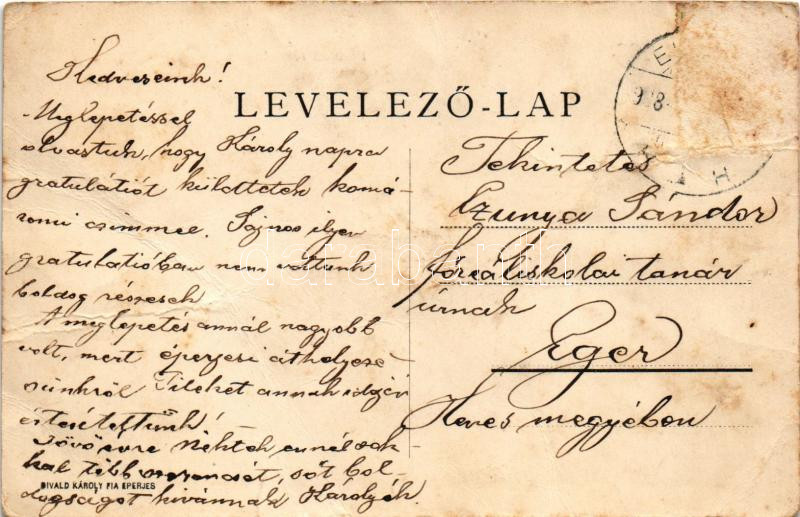 LEVELEZŐ-LAP
Kedveseink!
Meglepetéssel
olvastuk, hogy Károly napra
gratulátiót küldtetek komá-
romi cimmel. Sajnos ilyen
gratulatióban nem voltunk
boldog részesek
A meglepetés annál nagyobb
volt, mert eperjesi áthelyezé-
sünkről Titeket annak idején
értesítettünk!
Jövőre Nektek ennél sok-
kal több szerencsét, sőt bol-
dogságot kívánnak Károlyék.
DIVALD KÁROLY FIA EPERJES
Tekintetes
Czunya Sándor
főreáliskolai tanár
úrnak
Eger
Heves megyében
darabanth